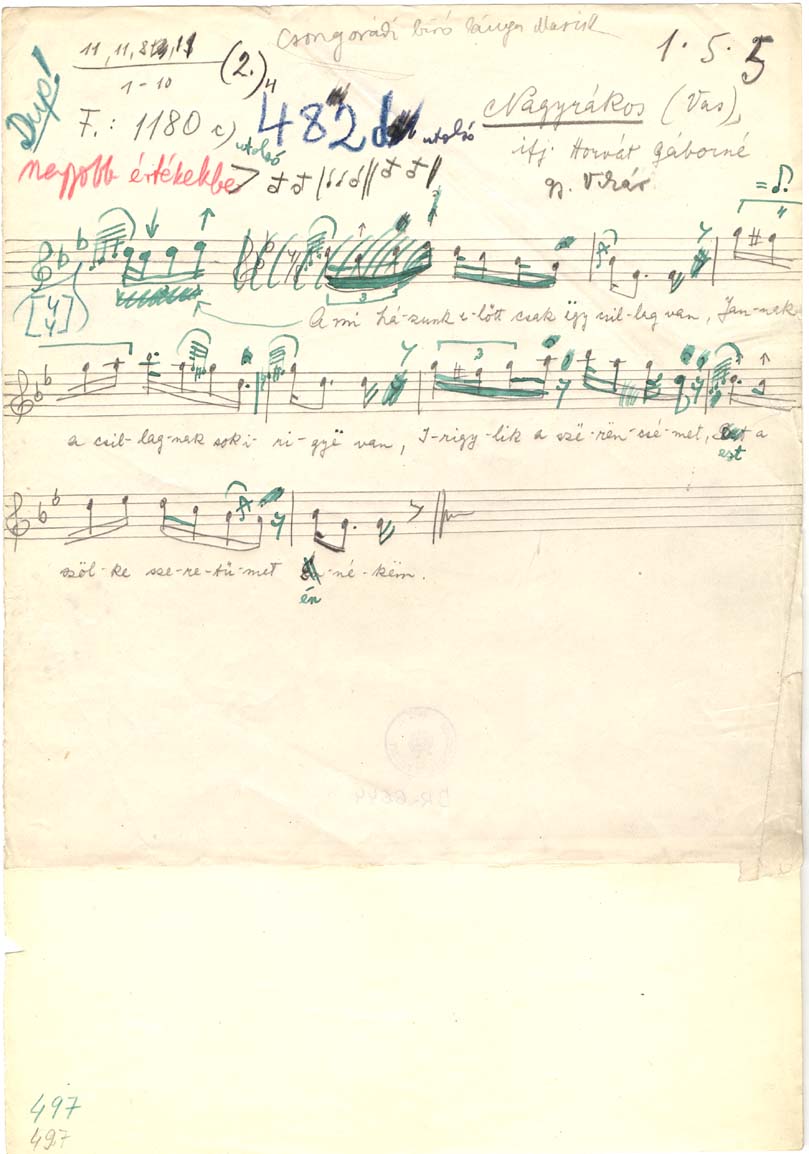 Csongorádi biró lánya Marisk
11, 11, 8
1-10
(2.)4
1. 5. 5
Dup!
F.: 1180 c) utolsó
482 d utolsó
Nagyrákos (Vas),
ifj Horvát Gáborné
gy. Vikár
nagyobb értékekbe
A mi há-zunk e-lőtt csak így csil-lag van, Jan-nak
3
3
a csil-lag-nak sok i-ri-gyë van, I-rigy-lik a szë-rën-csé-met, est a
3
szöl-ke sze-re-tü-met én-né-këm.
BR-6644
497
497